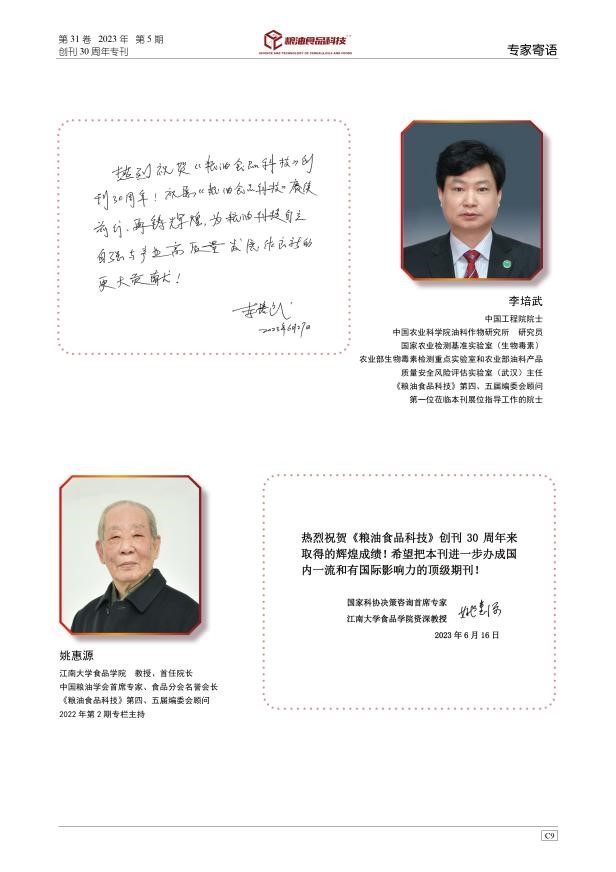 第 31 卷 2023 年 第 5 期
创刊 30 周年专刊
粮油食品科技
SCIENCE AND TECHNOLOGY OF CEREALS,OILS AND FOODS
专家寄语
热烈祝贺《粮油食品科技》创
刊30周年！祝愿《粮油食品科技》赓续
前行、再铸辉煌，为粮油科技自立
自强与产业高质量发展作出新的
更大贡献！
李培武
2023年6月27日
李培武
中国工程院院士
中国农业科学院油料作物研究所 研究员
国家农业检测基准实验室（生物毒素）
农业部生物毒素检测重点实验室和农业部油料产品
质量安全风险评估实验室（武汉）主任
《粮油食品科技》第四、五届编委会顾问
第一位莅临本刊展位指导工作的院士
热烈祝贺《粮油食品科技》创刊 30 周年来
取得的辉煌成绩！希望把本刊进一步办成国
内一流和有国际影响力的顶级期刊！
国家科协决策咨询首席专家
江南大学食品学院资深教授
姚惠源
2023 年 6 月 16 日
姚惠源
江南大学食品学院 教授、首任院长
中国粮油学会首席专家、食品分会名誉会长
《粮油食品科技》第四、五届编委会顾问
2022 年第 2 期专栏主持
C9